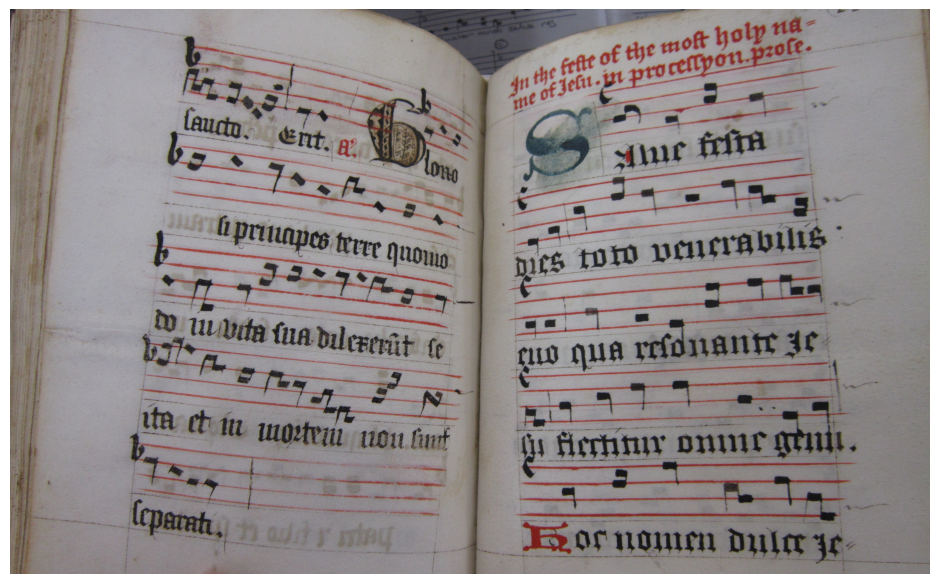 sancto. Erit. A. Glorio
si principes terre quomo
do in vita sua dilexerūt se
ita et in mortem non sunt
separati.
In the feste of the most holy na=
me of Jesu. in processyon. prose.
Salue festa
dies toto venerabilis
euo qua resonante Je
su flectitur omne genu.
Hoc nomen dulce Je=